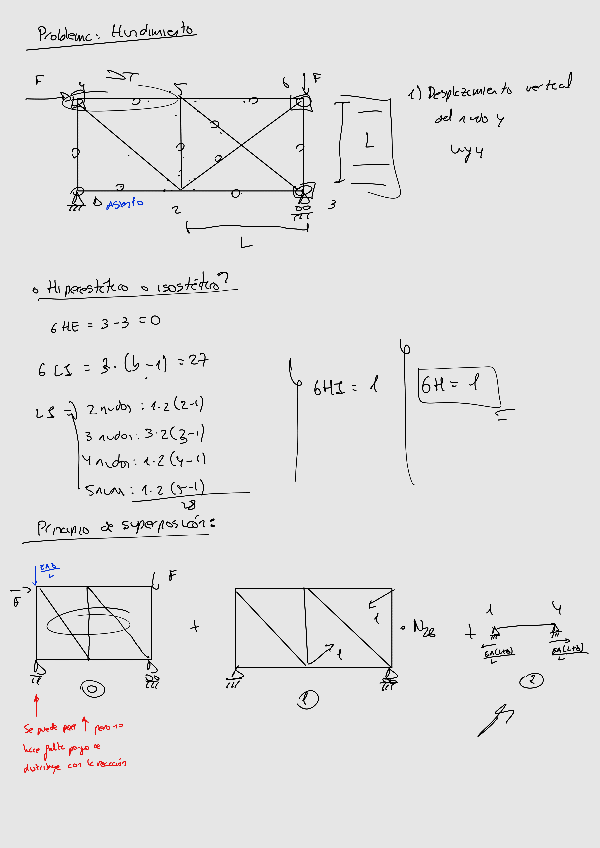 Problema: Hundimiento
F
4
ΔT
5
6
F
1) Desplazamiento vertical
del nudo 4
uy4
L
Δ Asiento
2
3
L
• Hiperestático o isostático?
GHE = 3-3 = 0
GLI = 3·(b-1) = 27
GHI = 1
GH = 1
LI ⇒ 2 nudos: 1·2(2-1)
3 nudos: 3·2(3-1)
4 nudos: 1·2(4-1)
5 nudos: 1·2(5-1)
28
Principio de superposición:
F
F
+
1
1
· N26
+
1
4
L
L
0
1
2
Se puede poner ↑ pero no
hace falta porque se
distribuye con la reacción